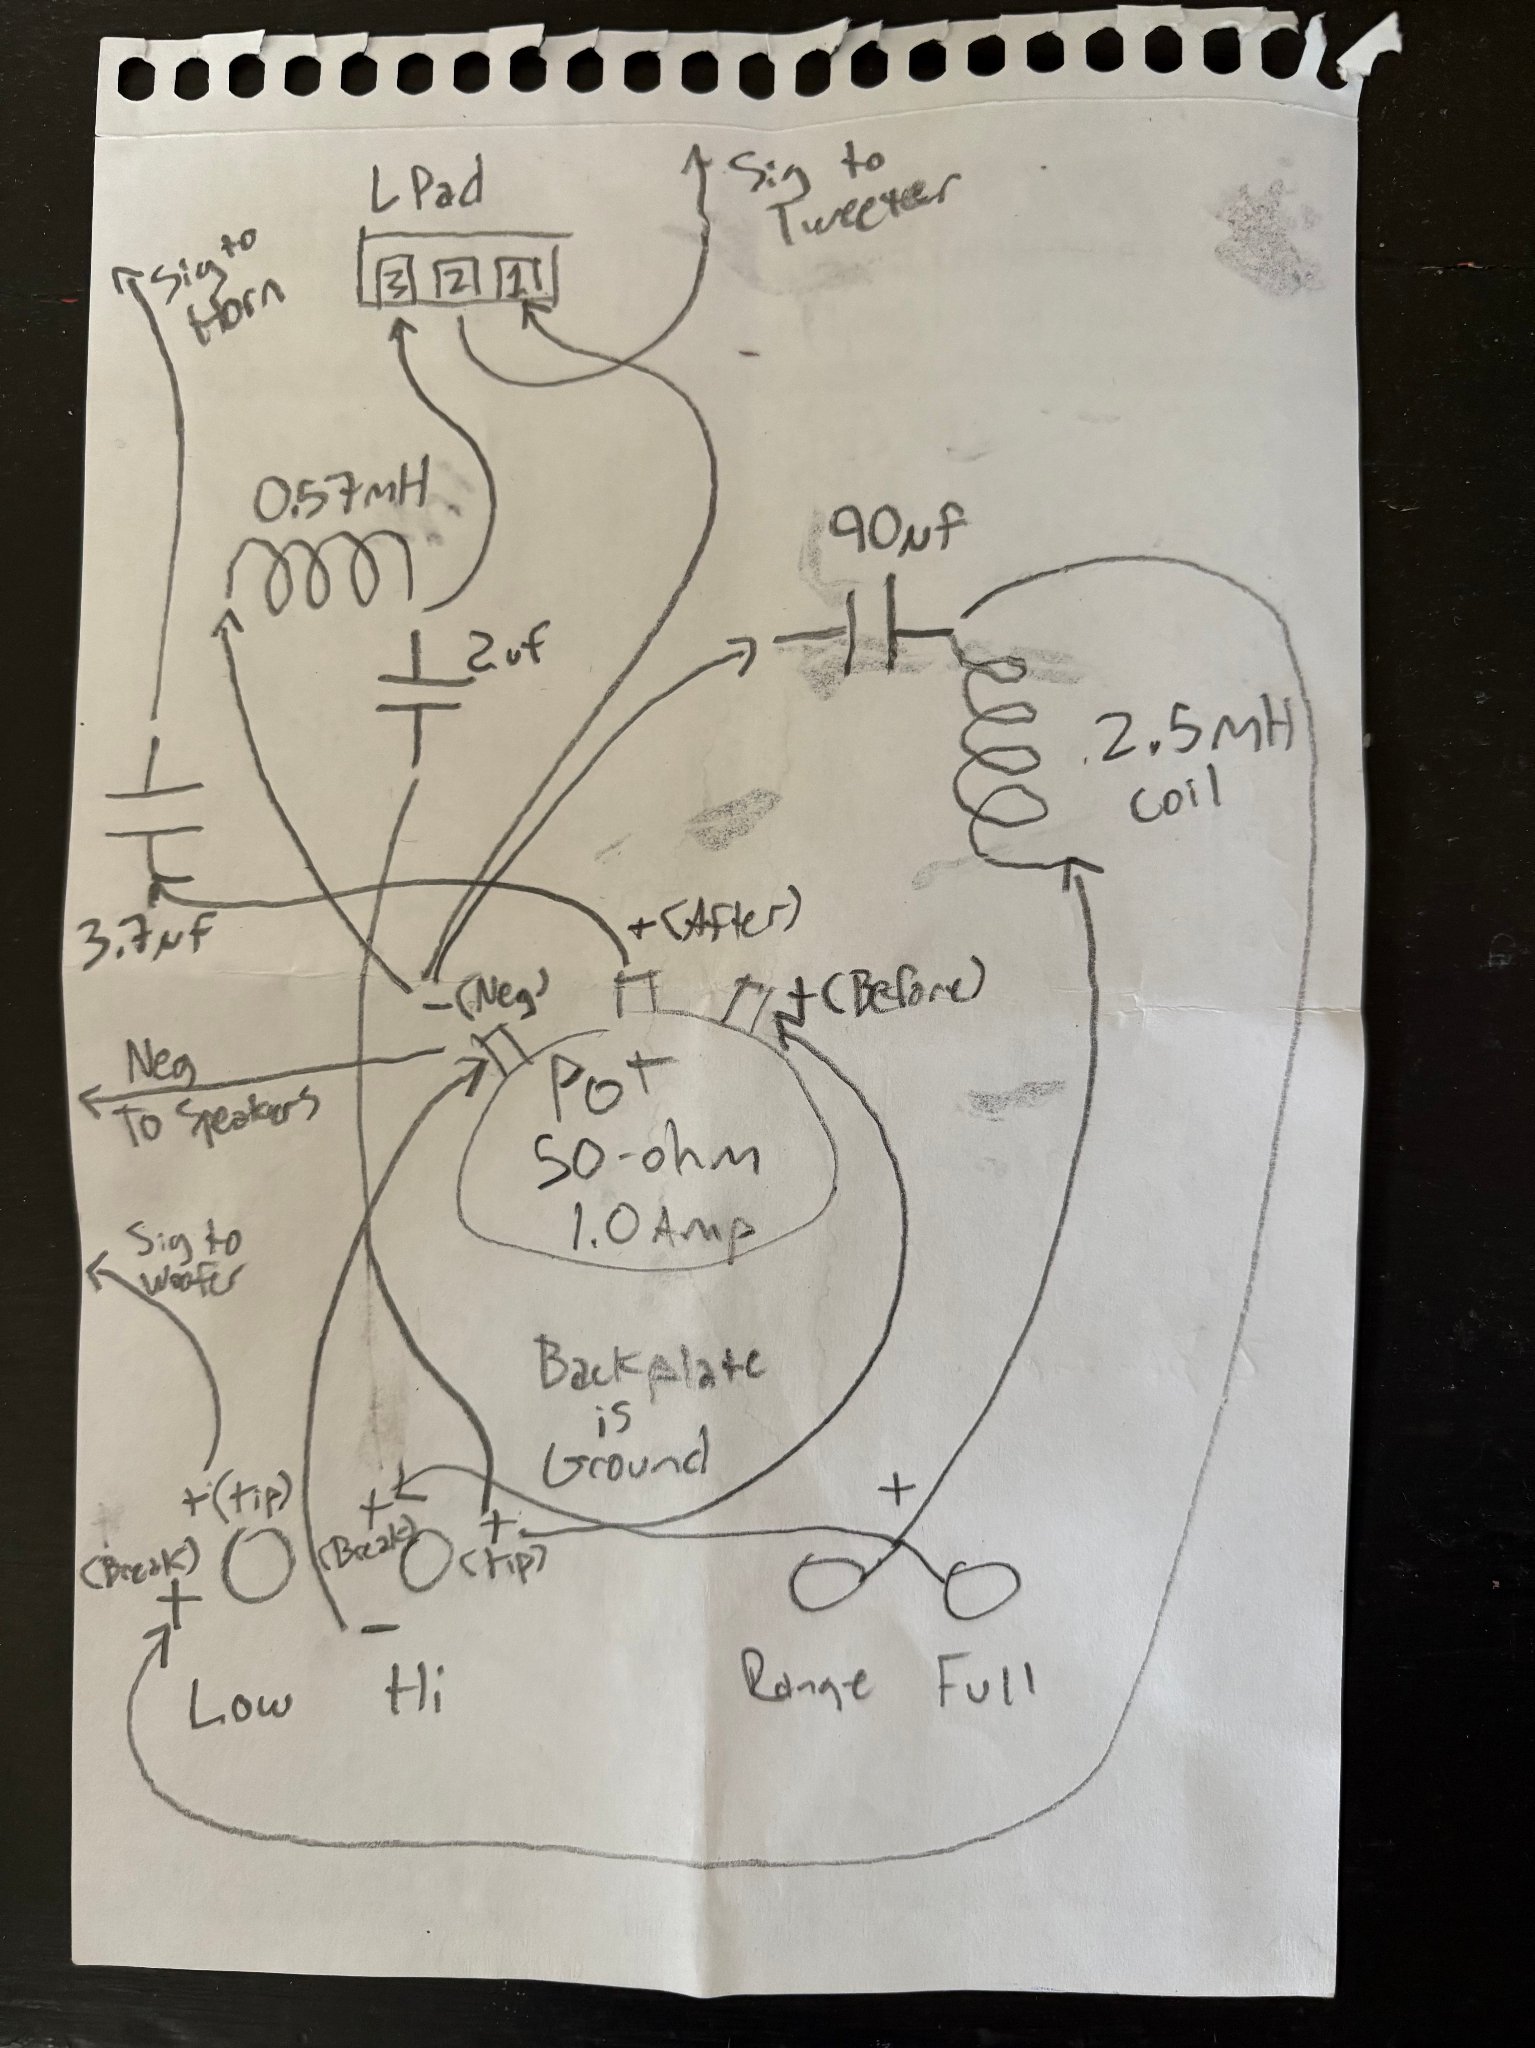 L Pad
3 2 1
Sig to
Tweeter
Sig to
Horn
0.57mH
90uf
2uf
2.5mH
coil
3.7uf
+(After)
-(Neg)
+(Before)
Neg
To Speakers
Pot
50-ohm
1.0 Amp
Sig to
Woofer
Backplate
is
Ground
+(tip)
(Break)
+
+
(Break)
+
(tip)
-
+
Low
Hi
Range
Full